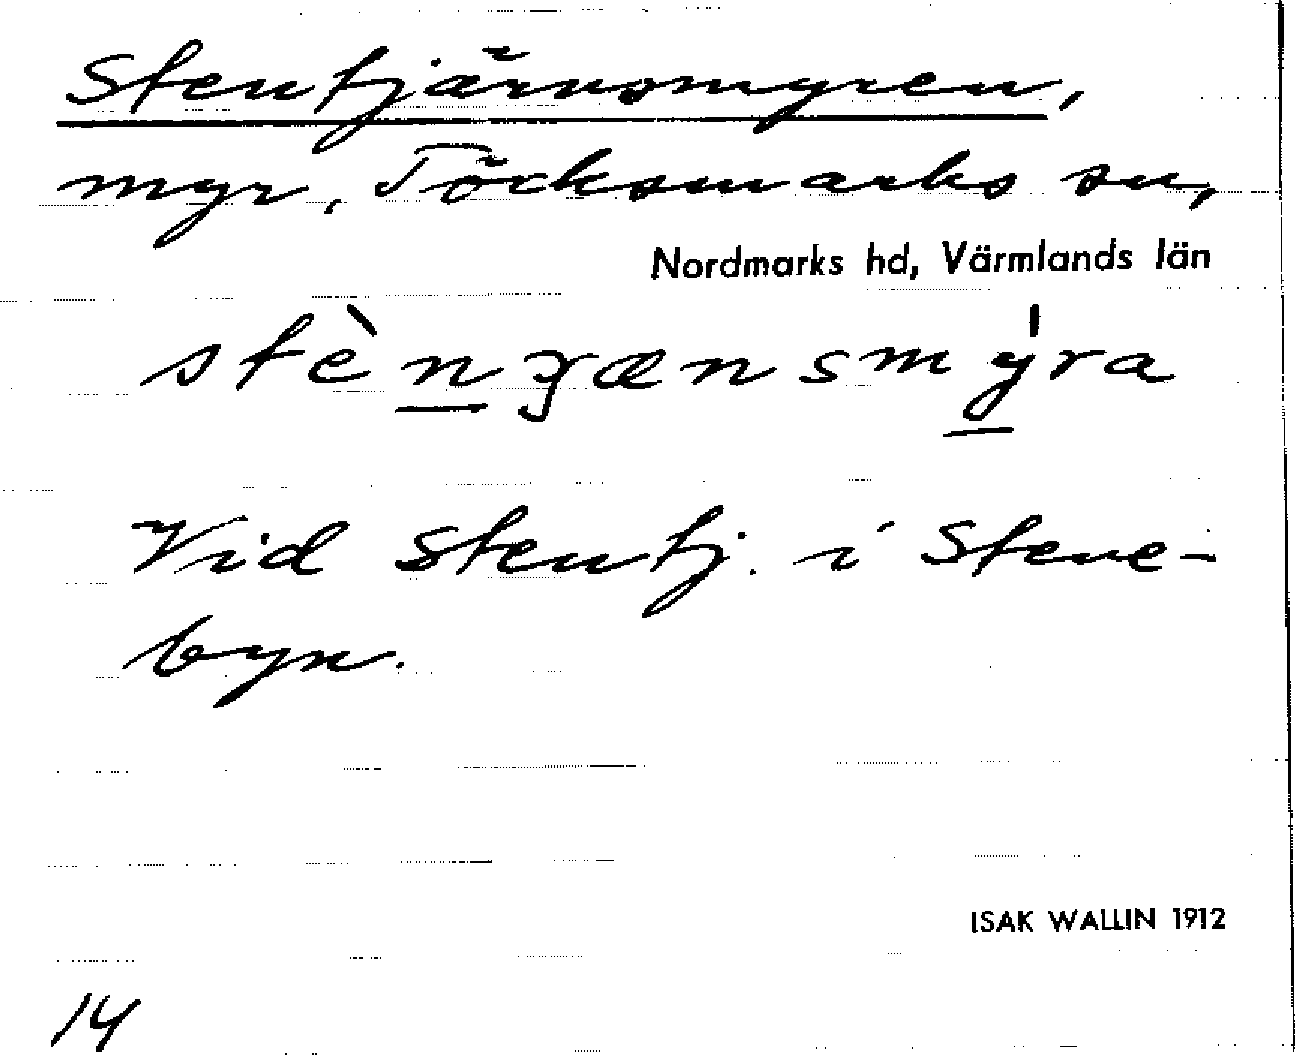 Stentjärnsmyren,
myr, Töcksmarks sn,
Nordmarks hd, Värmlands län
Vid Stentj. i Stene-
byn.
ISAK WALLIN 1912
14